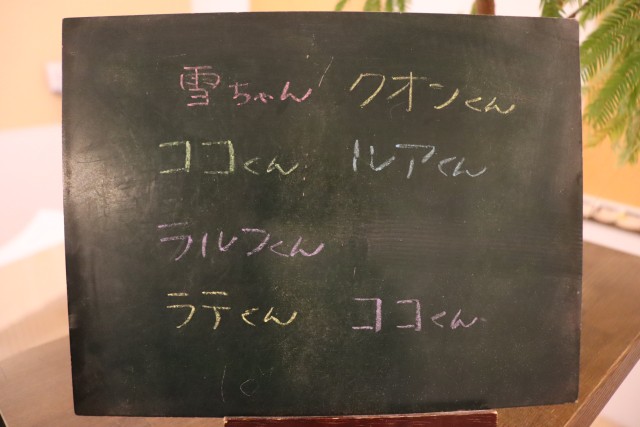 雪ちゃん クオンくん
ココくん ルアくん
ラルフくん
ラテくん ココくん